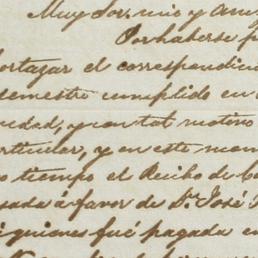 Muy Sor. mio y am
Por haberse p
ortazar el correspondien
semestre cumplido en
uidad, y con tal motivo
articular, y en este mom
o tiempo el Recibo de C
sada á favor de Dn. José
quiones fué pagada en